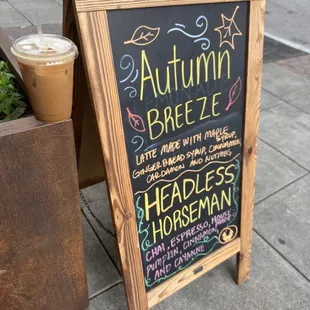 Autumn
BREEZE
LATTE MADE WITH MAPLE
SYRUP,
GINGERBREAD SYRUP, CINNAMON,
CARDAMON AND NUTMEG
HEADLESS
HORSEMAN
CHAI, ESPRESSO, HOUSE
MADE
PUMPKIN, CINNAMON,
AND CAYANNE